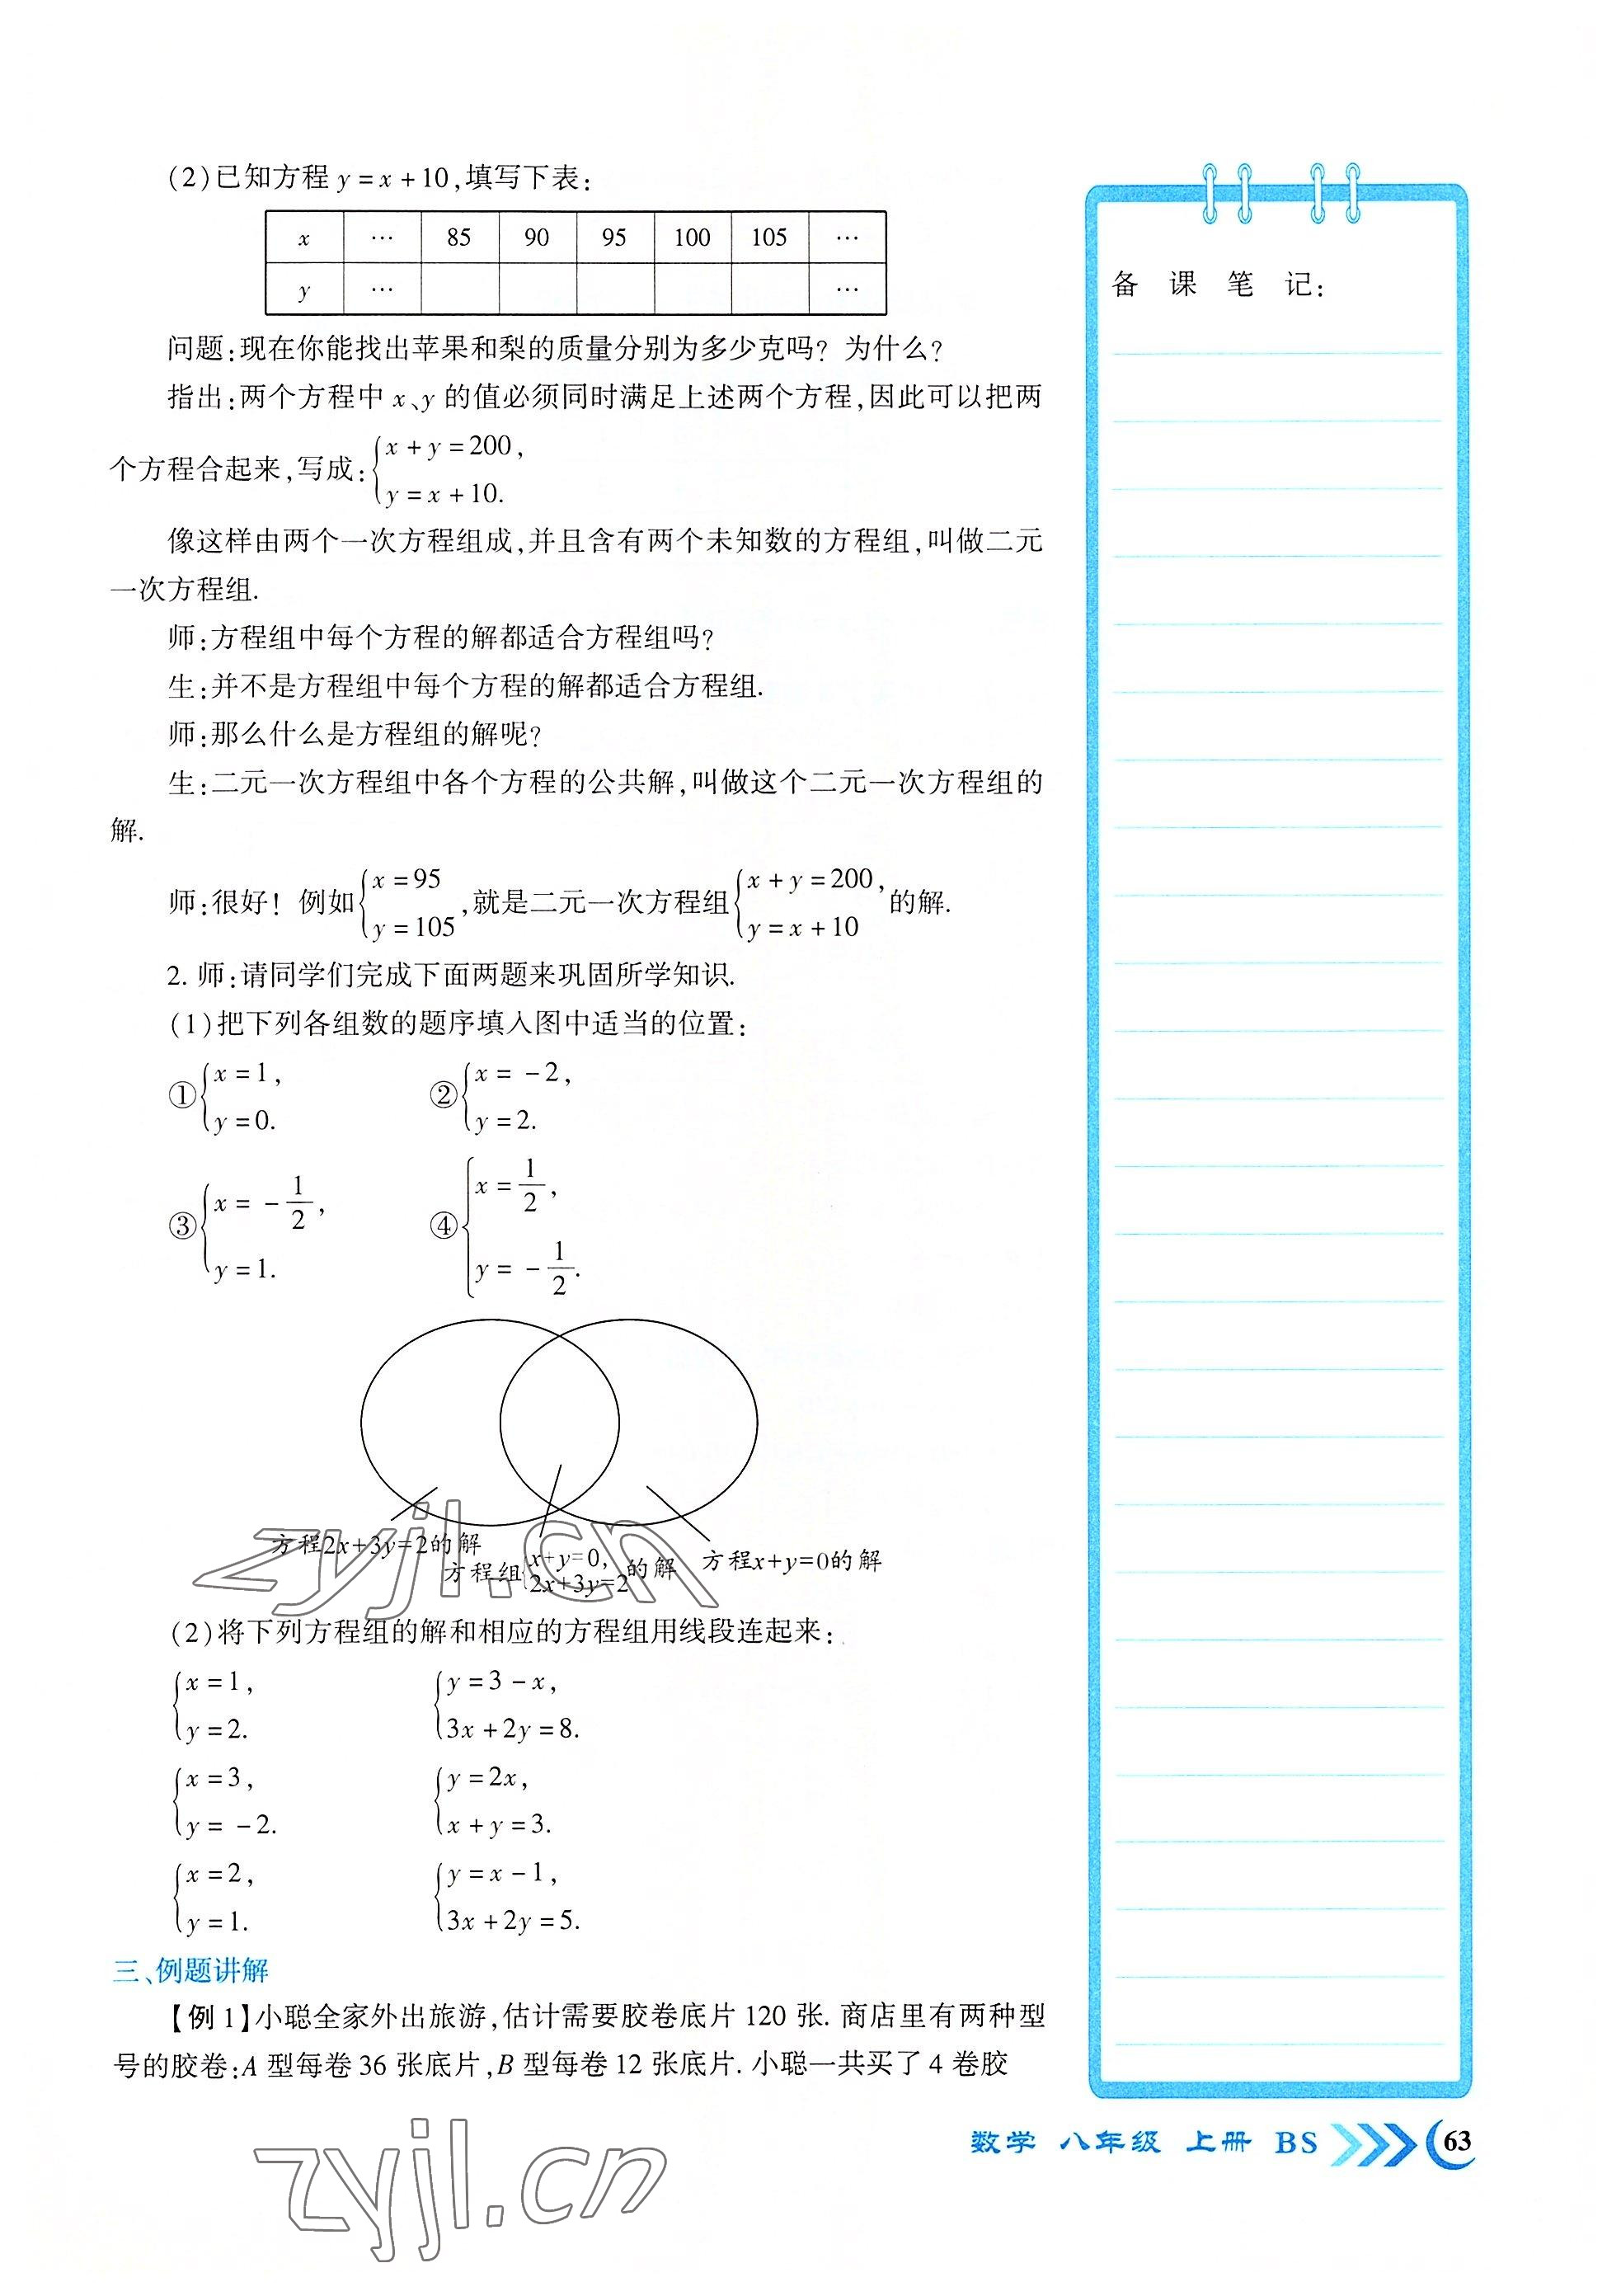 (2)已知方程 y=x+10,填写下表:
x … 85 90 95 100 105 …
y … …
问题:现在你能找出苹果和梨的质量分别为多少克吗? 为什么?
指出:两个方程中 x、y 的值必须同时满足上述两个方程,因此可以把两
个方程合起来,写成:{x+y=200, y=x+10.
像这样由两个一次方程组成,并且含有两个未知数的方程组,叫做二元
一次方程组.
师:方程组中每个方程的解都适合方程组吗?
生:并不是方程组中每个方程的解都适合方程组.
师:那么什么是方程组的解呢?
生:二元一次方程组中各个方程的公共解,叫做这个二元一次方程组的
解.
师:很好! 例如{x=95 y=105,就是二元一次方程组{x+y=200, y=x+10 的解.
2. 师:请同学们完成下面两题来巩固所学知识.
(1)把下列各组数的题序填入图中适当的位置:
①{x=1, y=0. ②{x=-2, y=2.
③{x=-1/2, y=1. ④{x=1/2, y=-1/2.
方程2x+3y=2的解
方程组{x+y=0, 2x+3y=2 的解
方程x+y=0的解
(2)将下列方程组的解和相应的方程组用线段连起来:
{x=1, y=2. {y=3-x, 3x+2y=8.
{x=3, y=-2. {y=2x, x+y=3.
{x=2, y=1. {y=x-1, 3x+2y=5.
三、例题讲解
【例1】小聪全家外出旅游,估计需要胶卷底片 120 张. 商店里有两种型
号的胶卷:A 型每卷 36 张底片,B 型每卷 12 张底片. 小聪一共买了 4 卷胶
备 课 笔 记:
数学 八年级 上册 BS 63
zyjl.cn
zyjl.cn